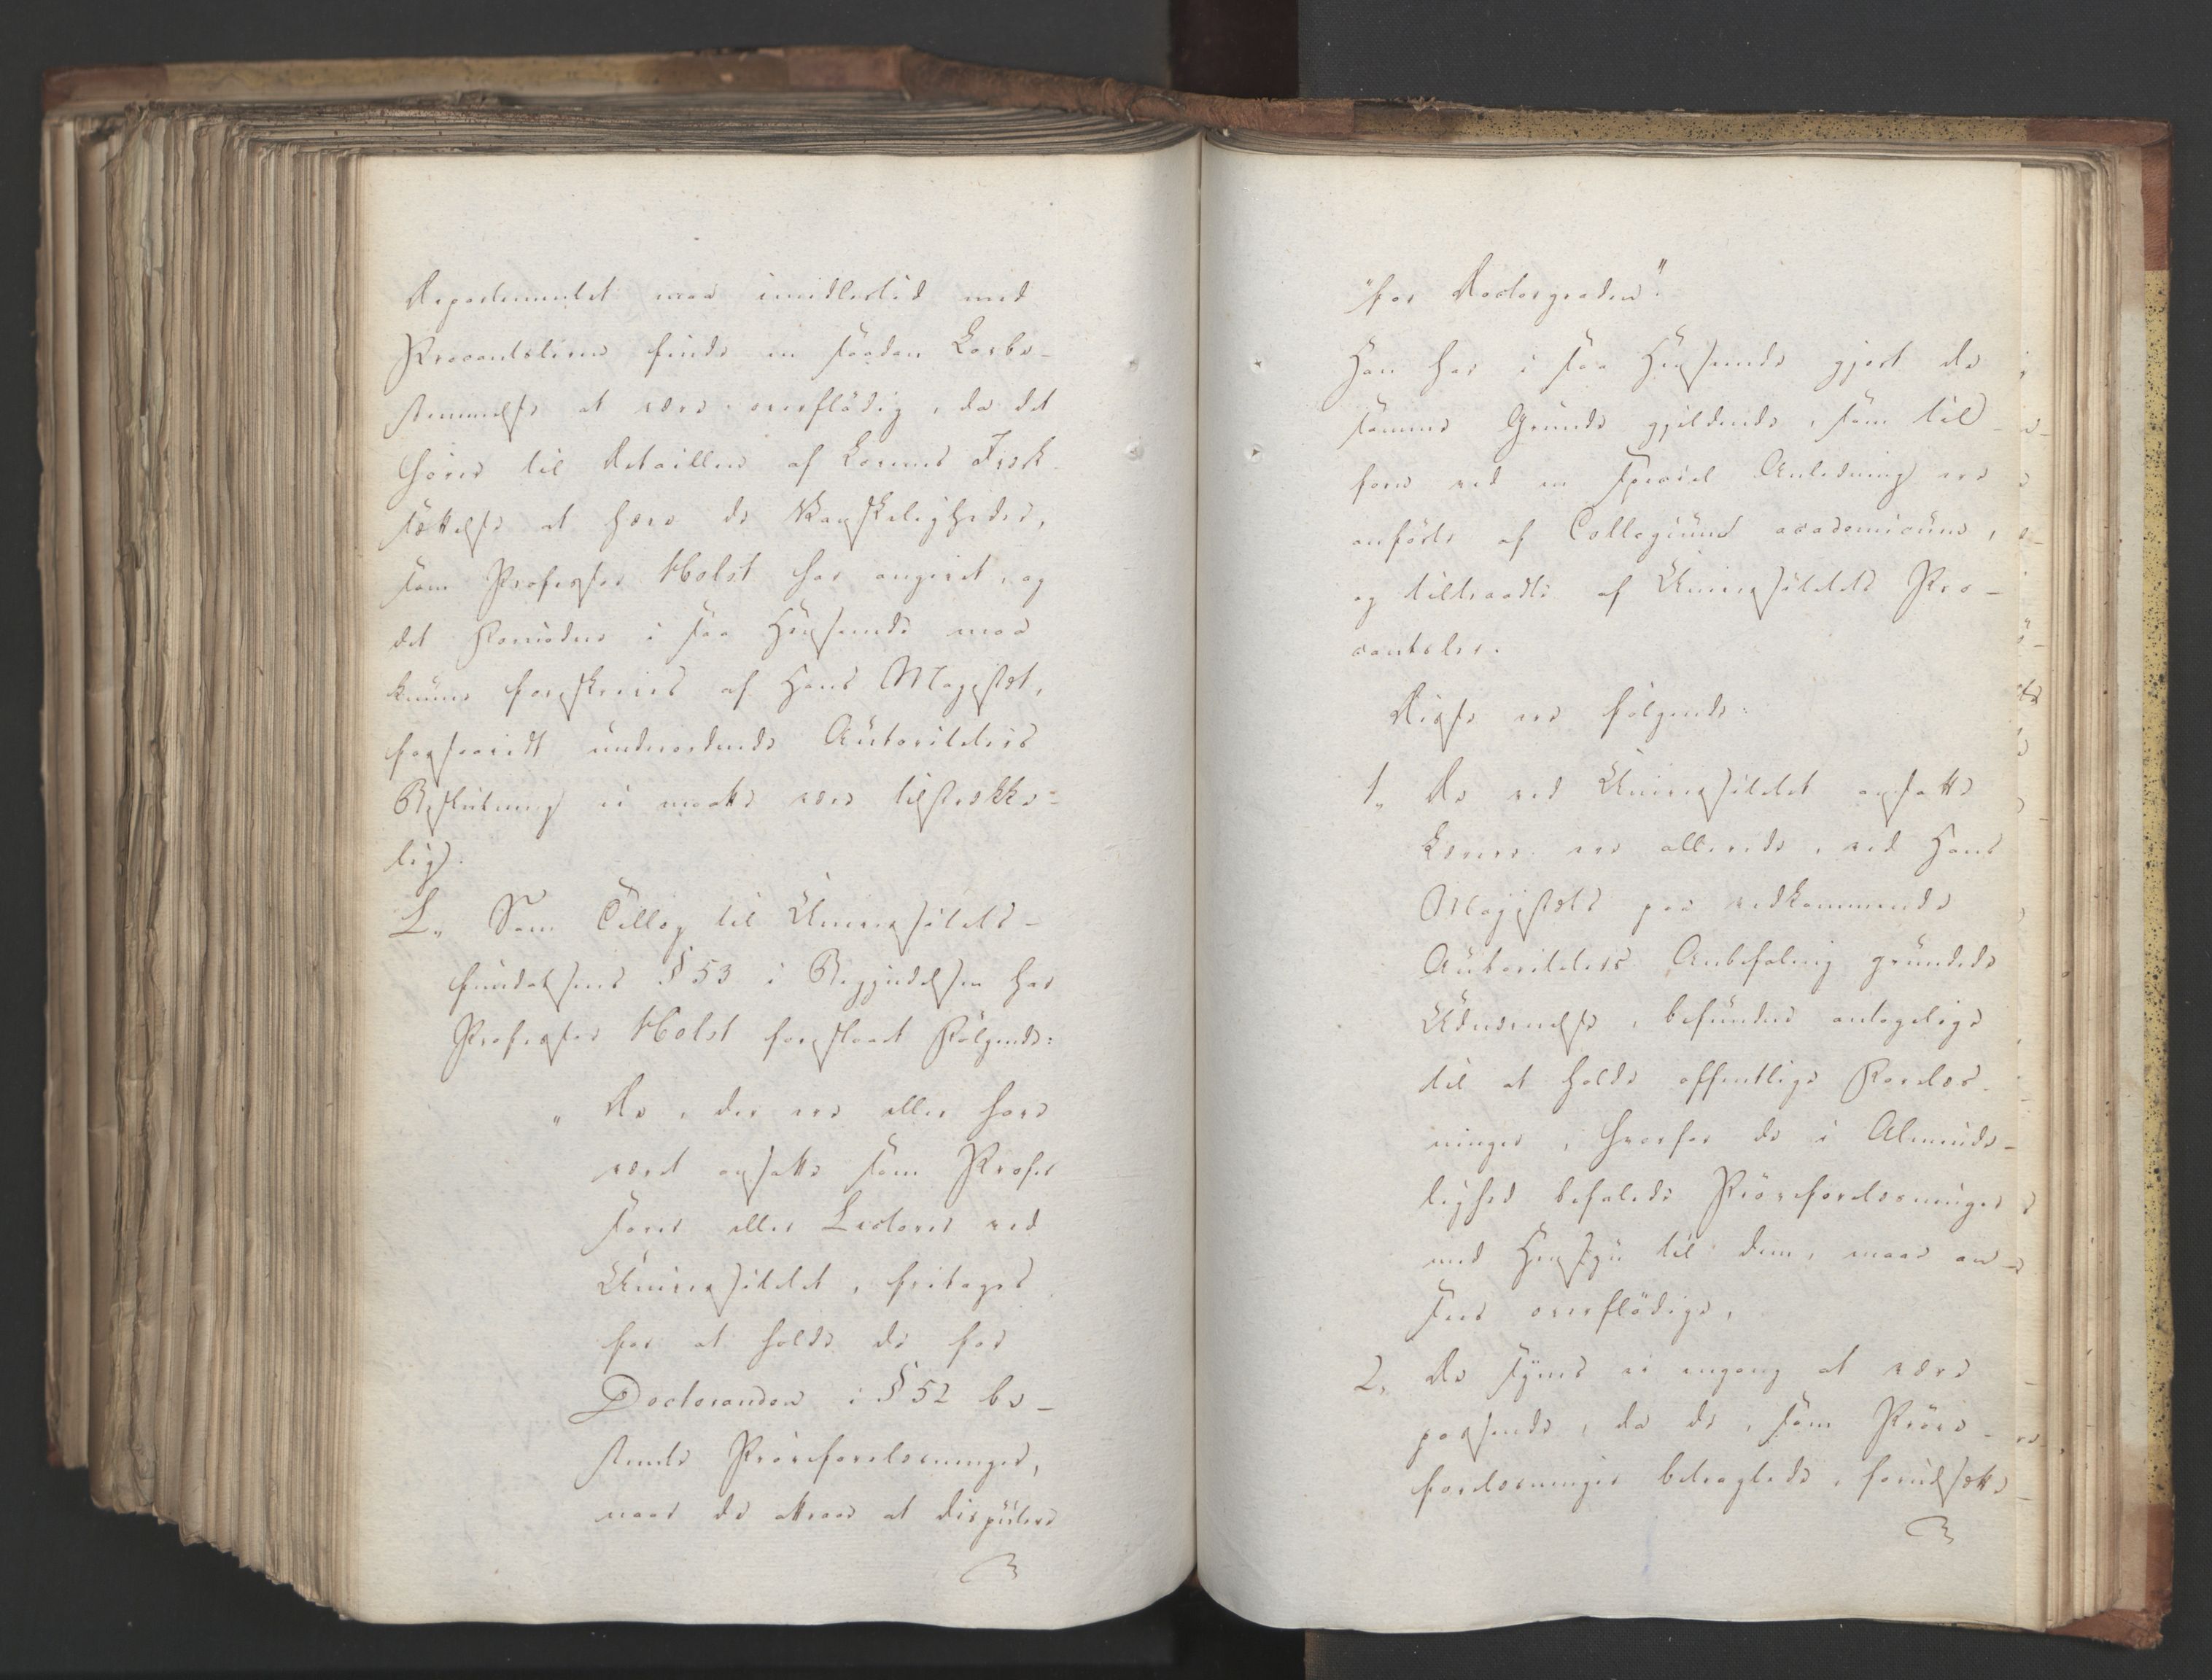 Departementet maa imidlertid med
Procantsleren finde en saadan Lovbe-
stemmelse at være overflödig, da det
hörer til Detaillen af Lovens Iværk-
sættelse at hæve de Vanskeligheder,
som Professor Holst har angivet, og
det Fornödne i saa Henseende maa
kunne foreskrives af Hans Majestæt,
forsaavidt underordnede Autoriteters
Beslutning ei maatte være tilstrække-
lig.
L. Som Tillæg til Universitets-
fundatsens § 53 i Begyndelsen har
Professor Holst foreslaaet Fölgende:
" De, der ere eller have
været ansatte som Profes
sorer eller Lectorer ved
Universitetet, fritages
for at holde de for
Doctoranden i § 52 be-
stemte Pröveforelæsninger,
naar de attraae at disputere
"for Doctorgraden".
Han har i saa Henseende gjort de
samme Grunde gjeldende, som til-
forn ved en speciel Anledning ere
anförte af Collegium academicum,
og tiltraadte af Universitetets Pro-
cantsler.
Disse ere fölgende:
1, De ved Universitetet ansatte
Lærere ere allerede, ved Hans
Majestæts paa vedkommende
Autoriteters Anbefaling grundede
Udnævnelse, befundne antagelige
til at holde offentlige Forelæs-
ninger, hvorfor de i Alminde-
lighed befalede Pröveforelæsninger
med Hensyn til dem, maae an-
sees overflödige,
2, De synes ei engang at være
passende, da de, som Pröve-
forelæsninger betragtede, forudsætte